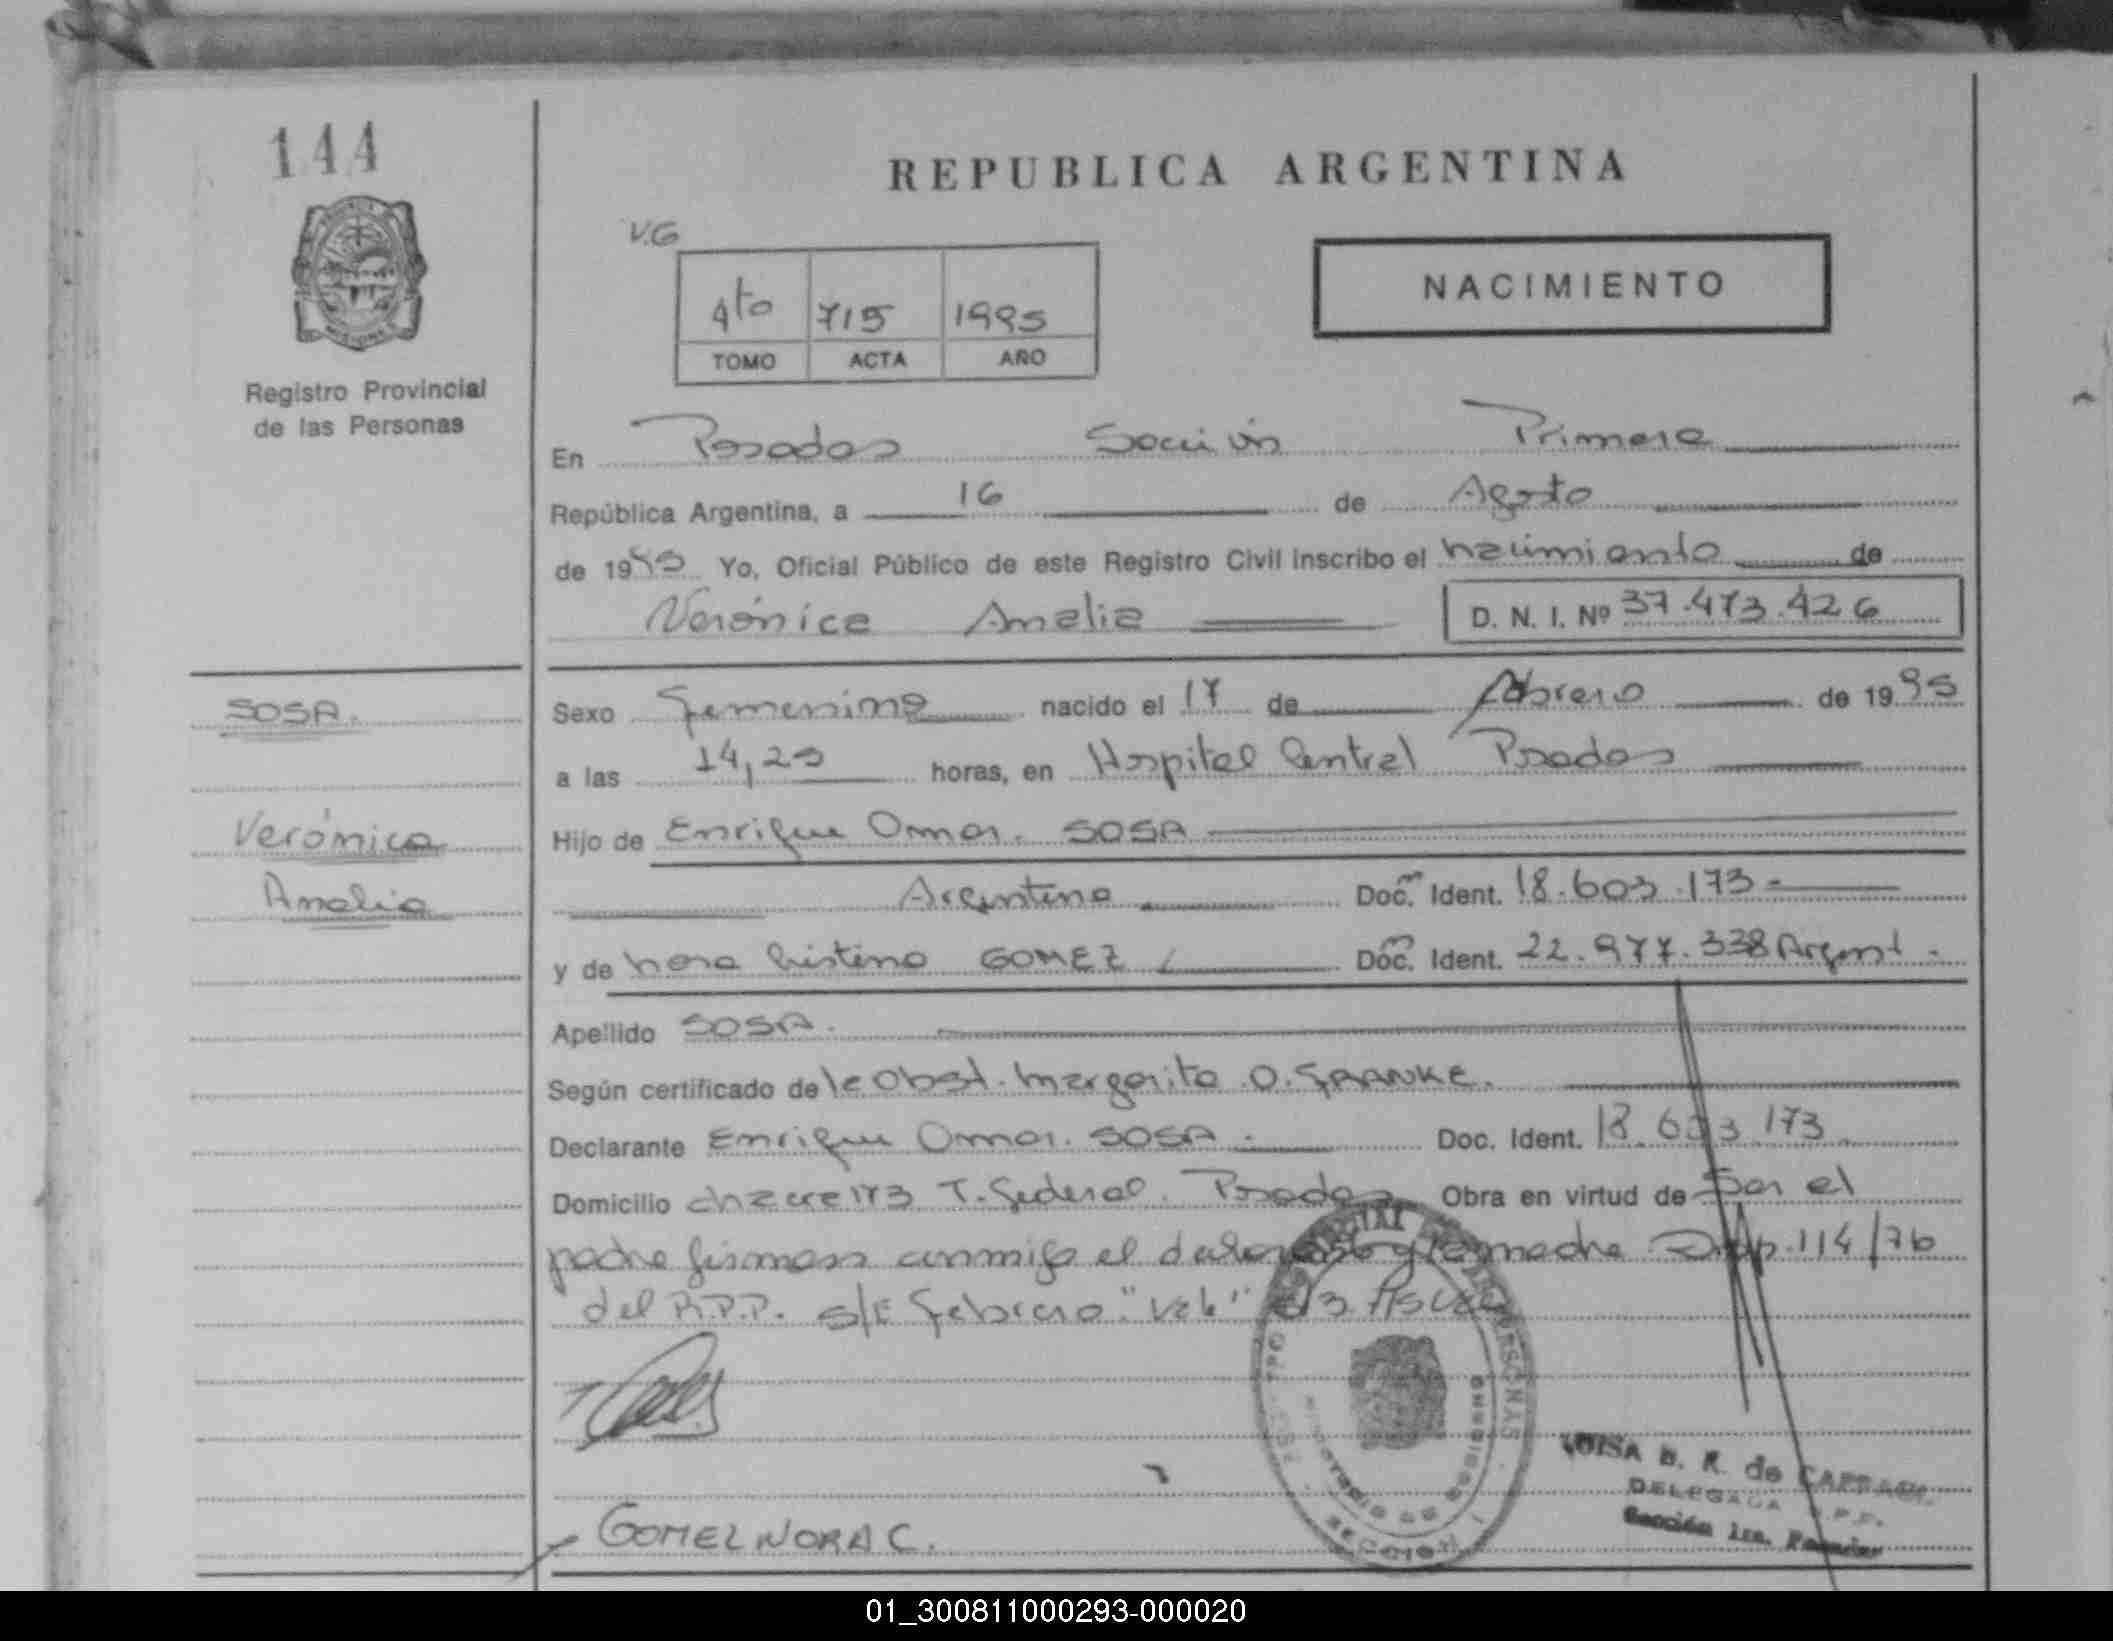 144
REPUBLICA ARGENTINA
V.G
NACIMIENTO
4to 715 1995
TOMO ACTA AÑO
Registro Provincial
de las Personas
En Posadas Sección Primera
República Argentina, a 16 de Agosto
de 1995 Yo, Oficial Público de este Registro Civil inscribo el nacimiento de
Verónica Amalia D. N. I. Nº 37.473.426
SOSA.
Sexo Femenino nacido el 17 de Febrero de 1995
a las 14,25 horas, en Hospital Central Posadas
Verónica
Hijo de Enrique Omar. SOSA
Amalia
Argentino Doc. Ident. 18.603.173-
y de Nora Cristina GOMEZ Doc. Ident. 22.977.338 Argent.
Apellido SOSA.
Según certificado de la Obst. Margarita O. FRANKE.
Declarante Enrique Omar. SOSA. Doc. Ident. 18.603.173
Domicilio chacra 173 T. Federal. Posadas Obra en virtud de Ser el
padre firman conmigo el declarante y la madre Disp. 114/76
del R.P.P. s/E Febrero. "Vale"
GOMEZ NORA C.
LUISA B. R. de
DELEGADA R.P.P.
Sección 1ra. Posadas
01_300811000293-000020